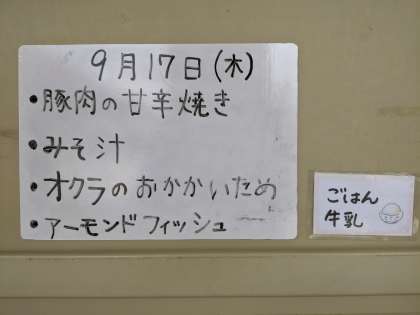 9月17日(木)
•豚肉の甘辛焼き
•みそ汁
•オクラのおかかいため
•アーモンドフィッシュ
ごはん
牛乳